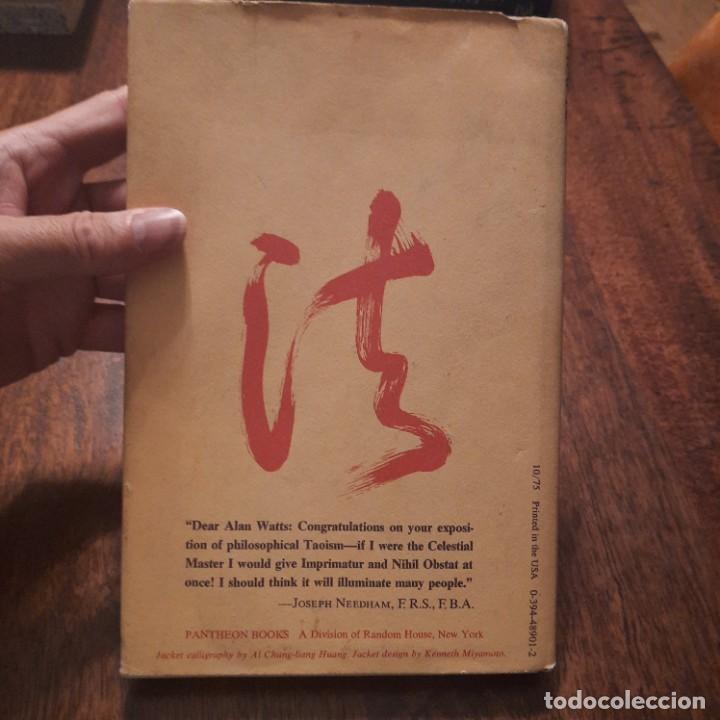 法
"Dear Alan Watts: Congratulations on your exposi-
tion of philosophical Taoism—if I were the Celestial
Master I would give Imprimatur and Nihil Obstat at
once! I should think it will illuminate many people."
—JOSEPH NEEDHAM, F.R.S., F.B.A.
PANTHEON BOOKS A Division of Random House, New York
Jacket calligraphy by Al Chung-liang Huang. Jacket design by Kenneth Miyamoto.
10/75 Printed in the USA 0-394-48901-2
todocoleccion